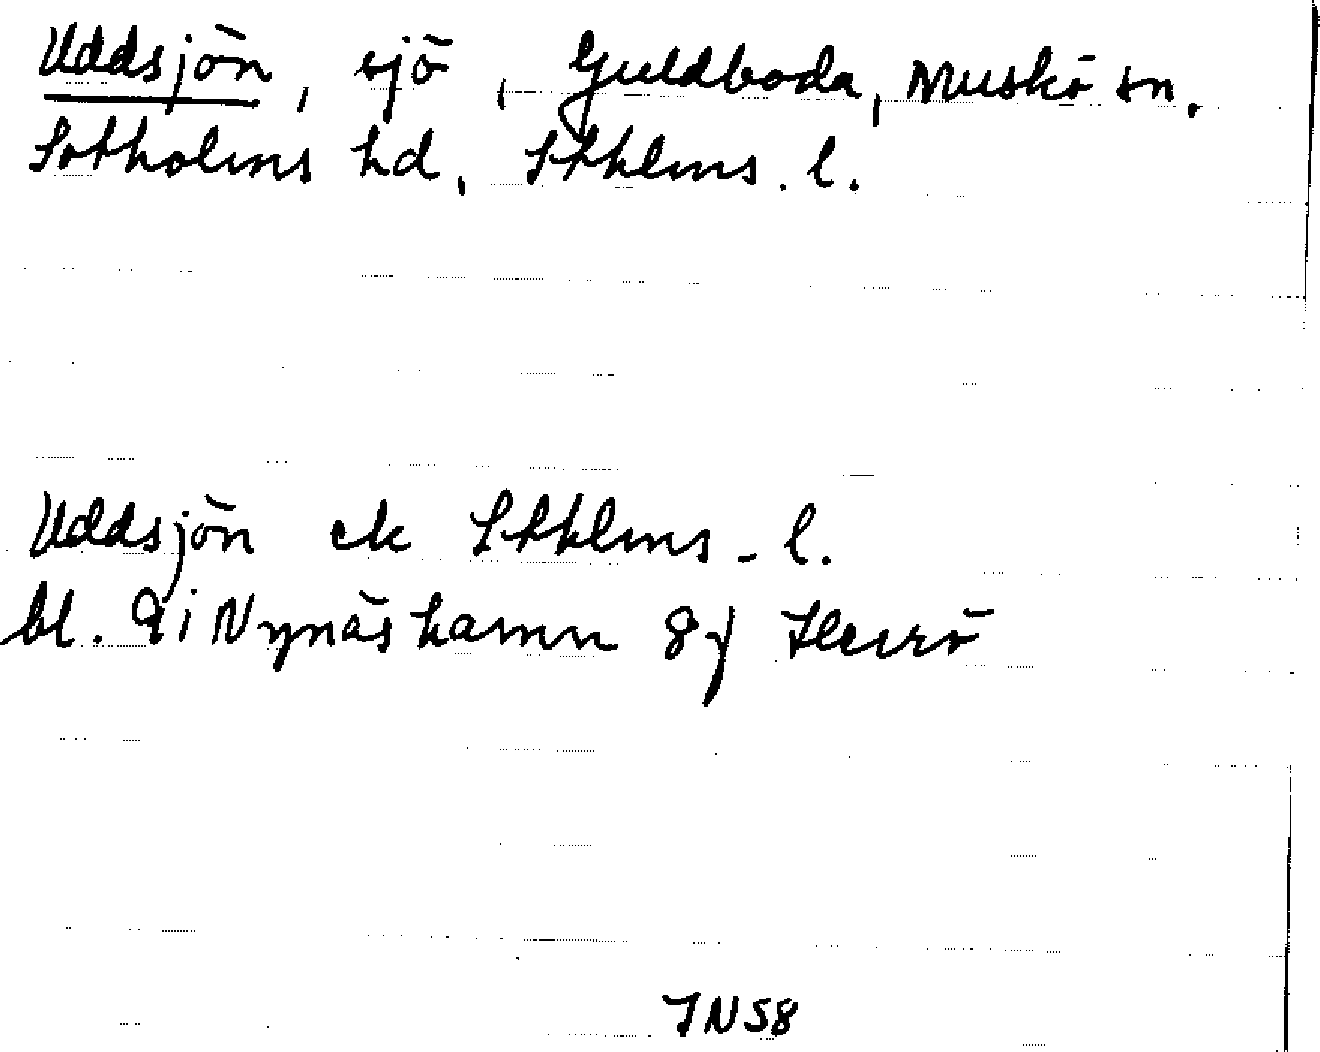 Uddsjön, sjö, Guldboda, Muskö sn.
Sotholms hd, Sthlms. l.
Uddsjön ek Sthlms - l.
bl. 9 i Nynäshamn 8j Herrö
JN58